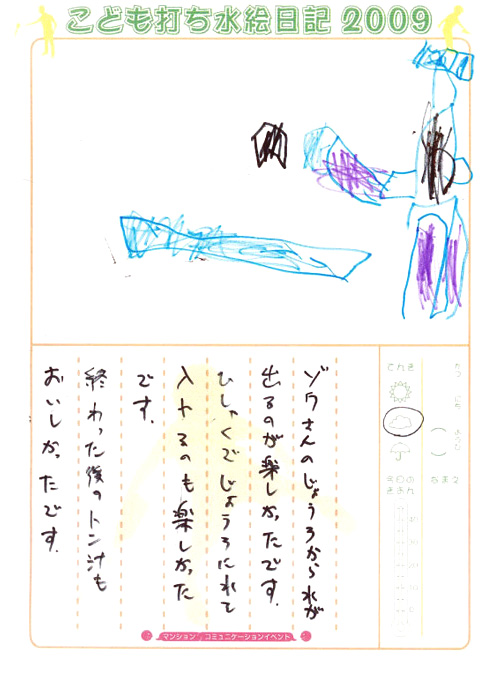 こども打ち水絵日記 2009
がつ にち ようび
（ ）
なまえ
てんき
今日の
きおん
ゾウさんのじょうろから水が
出るのが楽しかったです。
ひしゃくでじょうろにれて
入れるのも楽しかった
です。
終わった後のトン汁も
おいしかったです。
マンション コミュニケーションイベント